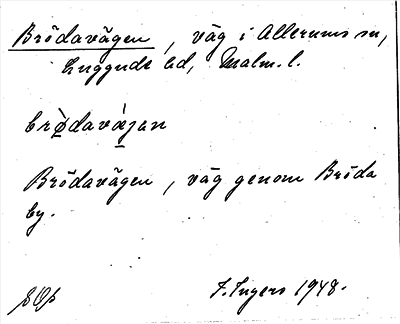 Brödavägen, väg i Allerums sn,
Luggude hd, Malm. l.
brø̀davæ̀jen
Brödavägen, väg genom Bröda
by.
I. Ingers 1948.